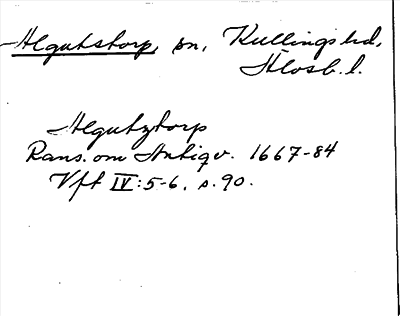 Algutstorp, sn, Kullings hd,
Älvsb. l.
Algutztorp
Rans. om Antiqv. 1667-84
Vft IV: 5-6, s. 90.